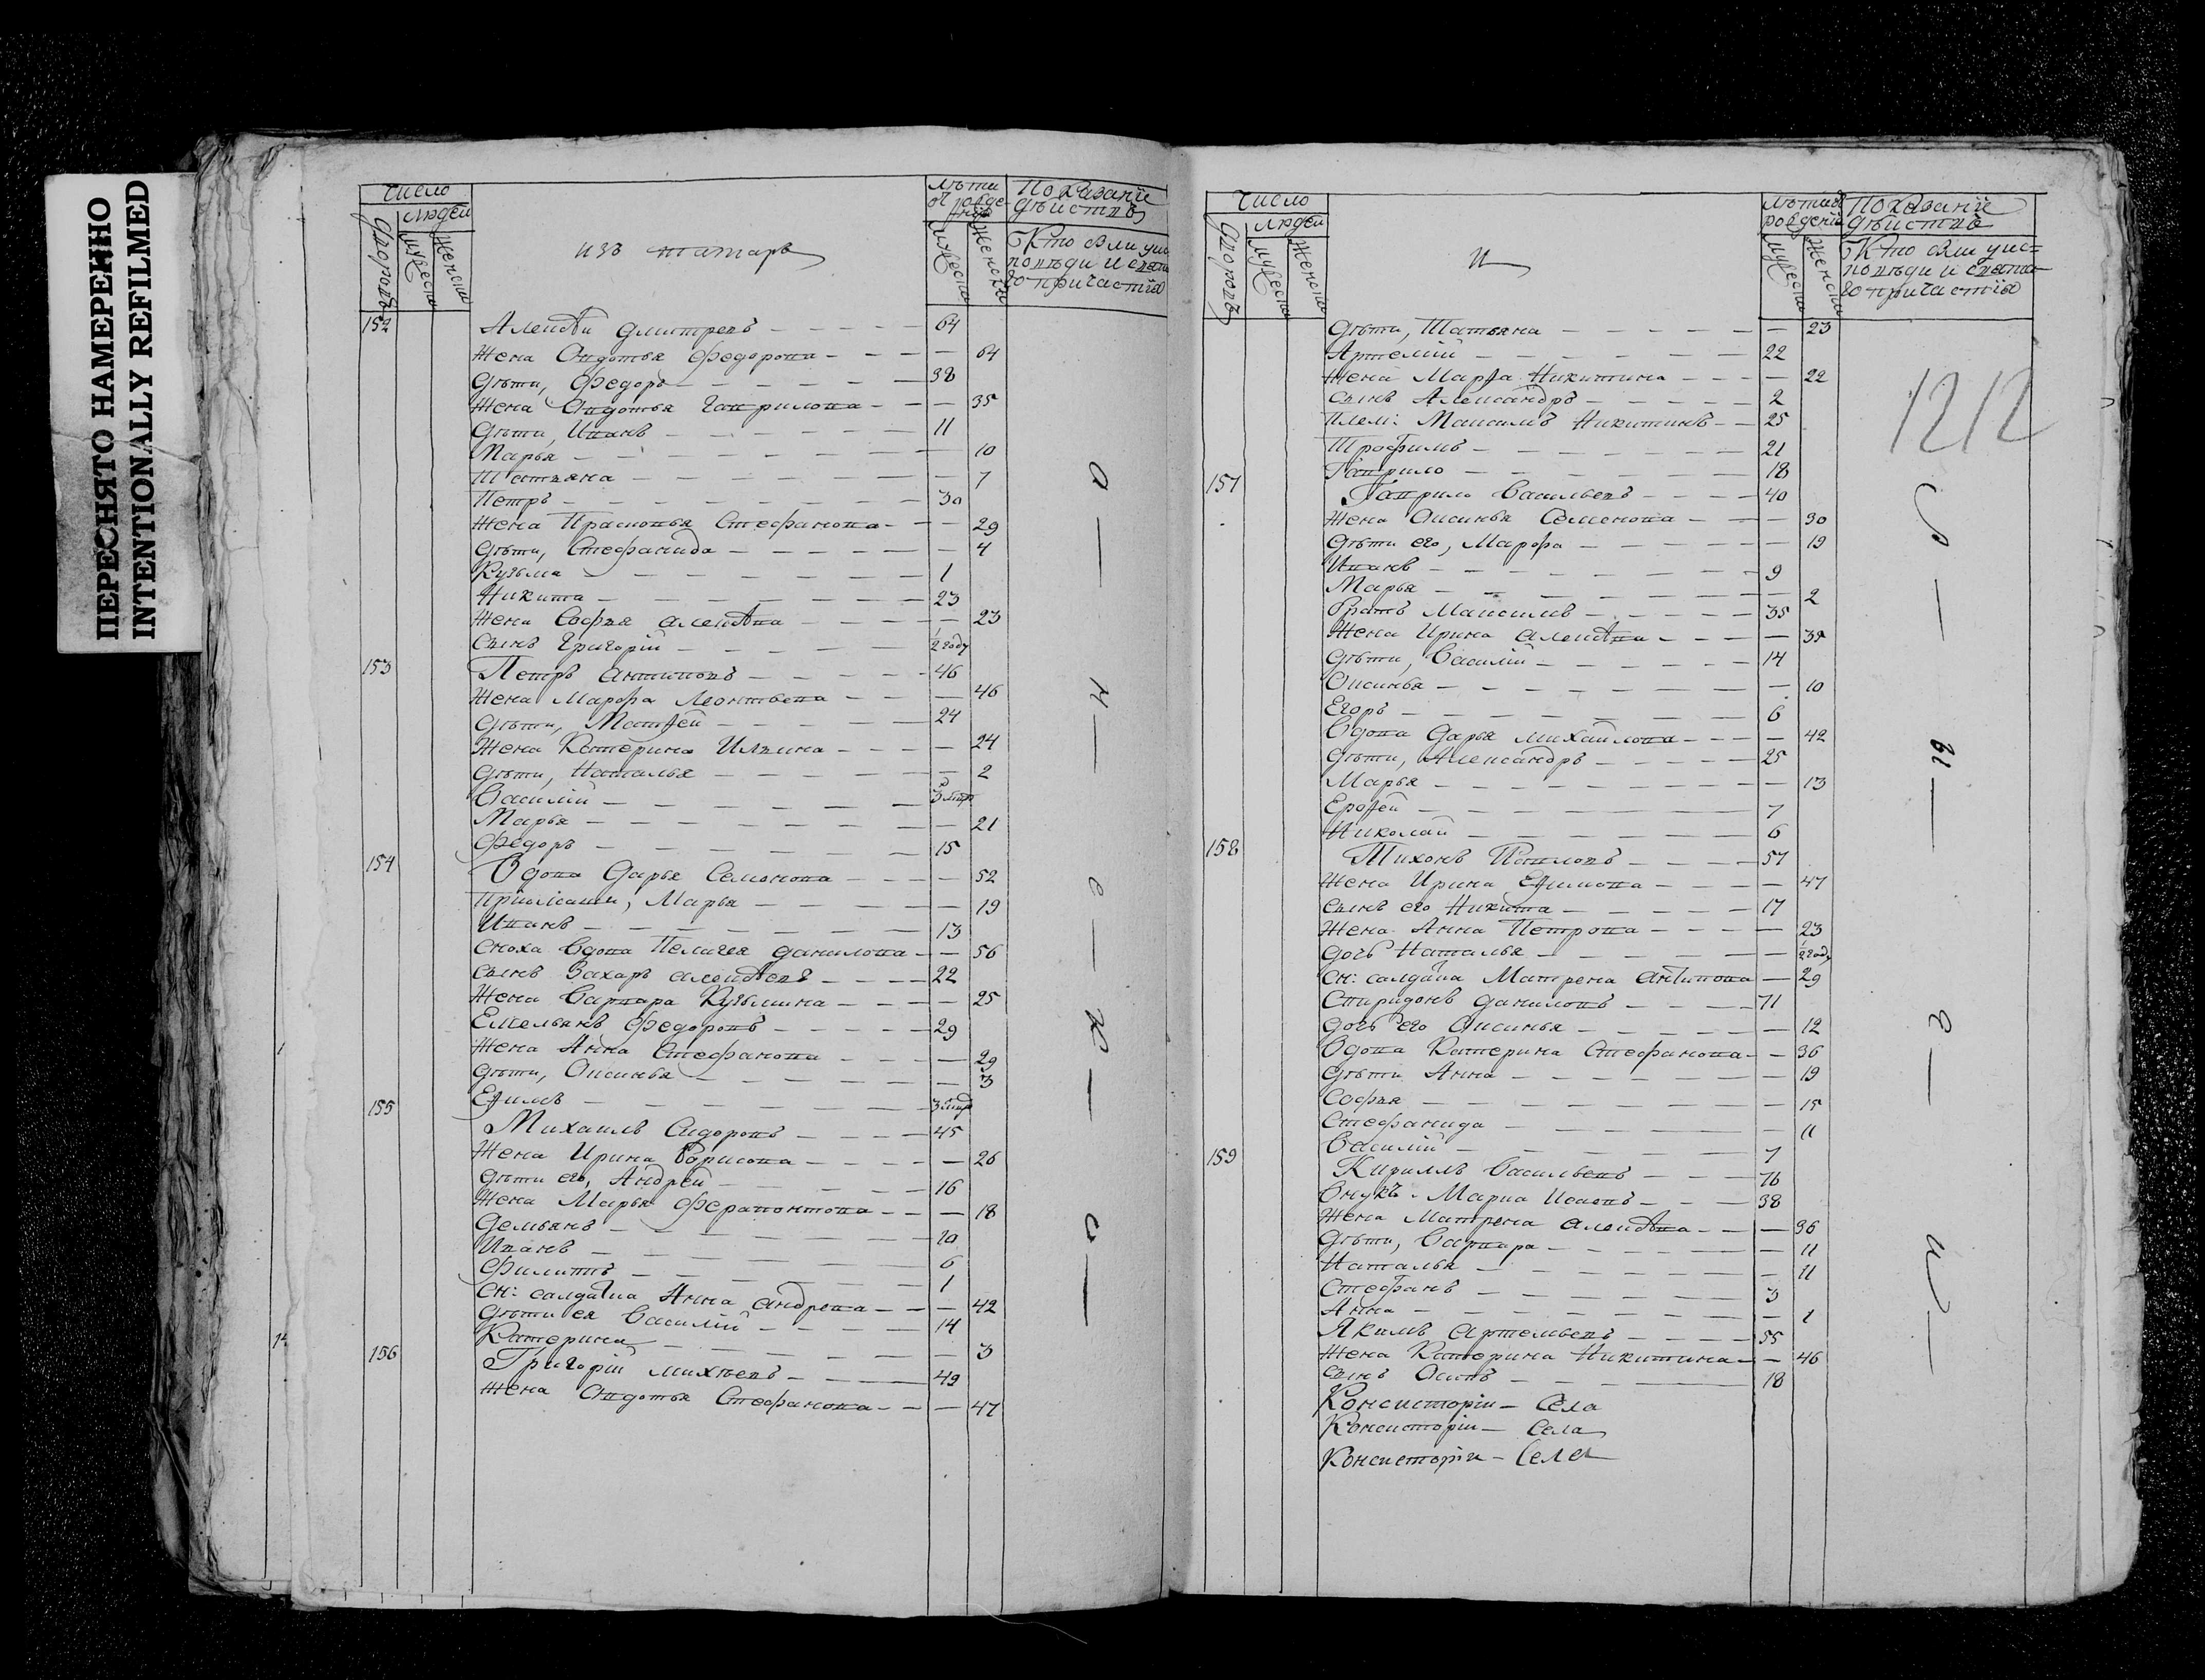 ПЕРЕСНЯТО НАМЕРЕННО
INTENTIONALLY REFILMED
Число
Людей
Дворовъ
Мужеска
Женска
изъ татаръ
Лѣта
от рожде-
нія
Мужеска
Женска
Показаніе
дѣйства
Кто были у ис
повѣди и свята
го причастія
152 Алексѣй Дмитревъ 64
Жена Овдотья Федорова 64
Дѣти, Федоръ 38
Жена Овдотья Гаврилова 35
Дѣти, Иванъ 11
Марья 10
Татьяна 7
Петръ 30
Жена Прасковья Стефанова 29
Дѣти, Стефанида 4
Кузьма 1
Никита 23
Жена Софья Алексѣва 23
Сынъ Григорій 1/2 году
153 Петръ Антиповъ 46
Жена Марфа Леонтьева 46
Дѣти, Матвей 24
Жена Катерина Ильина 24
Дѣти, Наталья 2
Василій
Марья 21
Федоръ 15
154 Вдова Дарья Семонова 52
Марья 19
Иванъ 13
Сноха вдова Пелагея Данилова 56
Сынъ Захаръ Алексѣевъ 22
Жена Варвара Кузьмина 25
Емельянъ Федоровъ 29
Жена Анна Стефанова 29
Дѣти, Оксинья 3
Ефимъ
155 Михаилъ Сидоровъ 45
Жена Ирина Борисова 26
Дѣти его, Андрей 16
Жена Марья Ферапонтова 18
Демьянъ 10
Иванъ 6
Филиппъ 1
Сн: салдатка Анна Андрева 42
Дѣти ея Василій 14
Катерина 3
156 Григорій Михѣевъ 49
Жена Овдотья Стефанова 47
Число
Людей
Дворовъ
Мужеска
Женска
И
Лѣта
рожденія
Мужеска
Женска
Показаніе
дѣйства
Кто были у ис=
повѣди и свята
го причастія
1212
Дѣти, Татьяна 23
Артемій 22
Жена Марфа Никитина 22
Сынъ Александръ 2
Плем: Максимъ Никитинъ 25
Трофимъ 21
Гаврило 18
157 Гаврило Васильевъ 40
Жена Оксинья Семенова 30
Дѣти его, Марфа 19
Иванъ 9
Марья 2
Братъ Максимъ 35
Жена Ирина Алексѣва 35
Дѣти, Василій 14
Оксинья 10
Егоръ 6
Вдова Дарья Михайлова 42
Дѣти, Александръ 25
Марья 13
Ерофей 7
Николай 6
158 Тихонъ Павловъ 57
Жена Ирина Ефимова 47
Сынъ его Никита 17
Жена Анна Петрова 23
Дочь Наталья 1/2 году
Сн: салдатка Матрена Антипова 29
Спиридонъ Даниловъ 71
Дочь его Оксинья 12
Вдова Катерина Стефанова 36
Дѣти Анна 19
Софья 15
Стефанида 11
Василій 7
159 Кириллъ Васильевъ 76
Внукъ Марка Исаевъ 38
Жена Матрена Алексѣва 36
Дѣти, Варвара 11
Наталья 11
Стефанъ 3
Анна 1
Якимъ Артемьевъ 55
Жена Катерина Никитина 46
Сынъ Осипъ 18
Консисторіи - Села
Консисторіи - Села
Консисторіи - Села